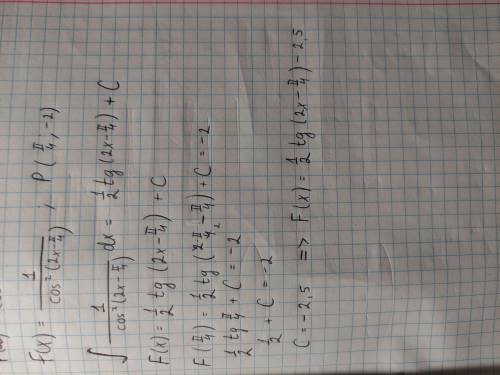 F(x) = 1/cos²(2x-π/4) ; P(π/4, -2)
∫ 1/cos²(2x-π/4) dx = 1/2 tg(2x-π/4) + C
F(x) = 1/2 tg(2x-π/4) + C
F(π/4) = 1/2 tg(2·π/4₂ - π/4) + C = -2
1/2 tg π/4 + C = -2
1/2 + C = -2
C = -2,5 => F(x) = 1/2 tg(2x-π/4) - 2,5